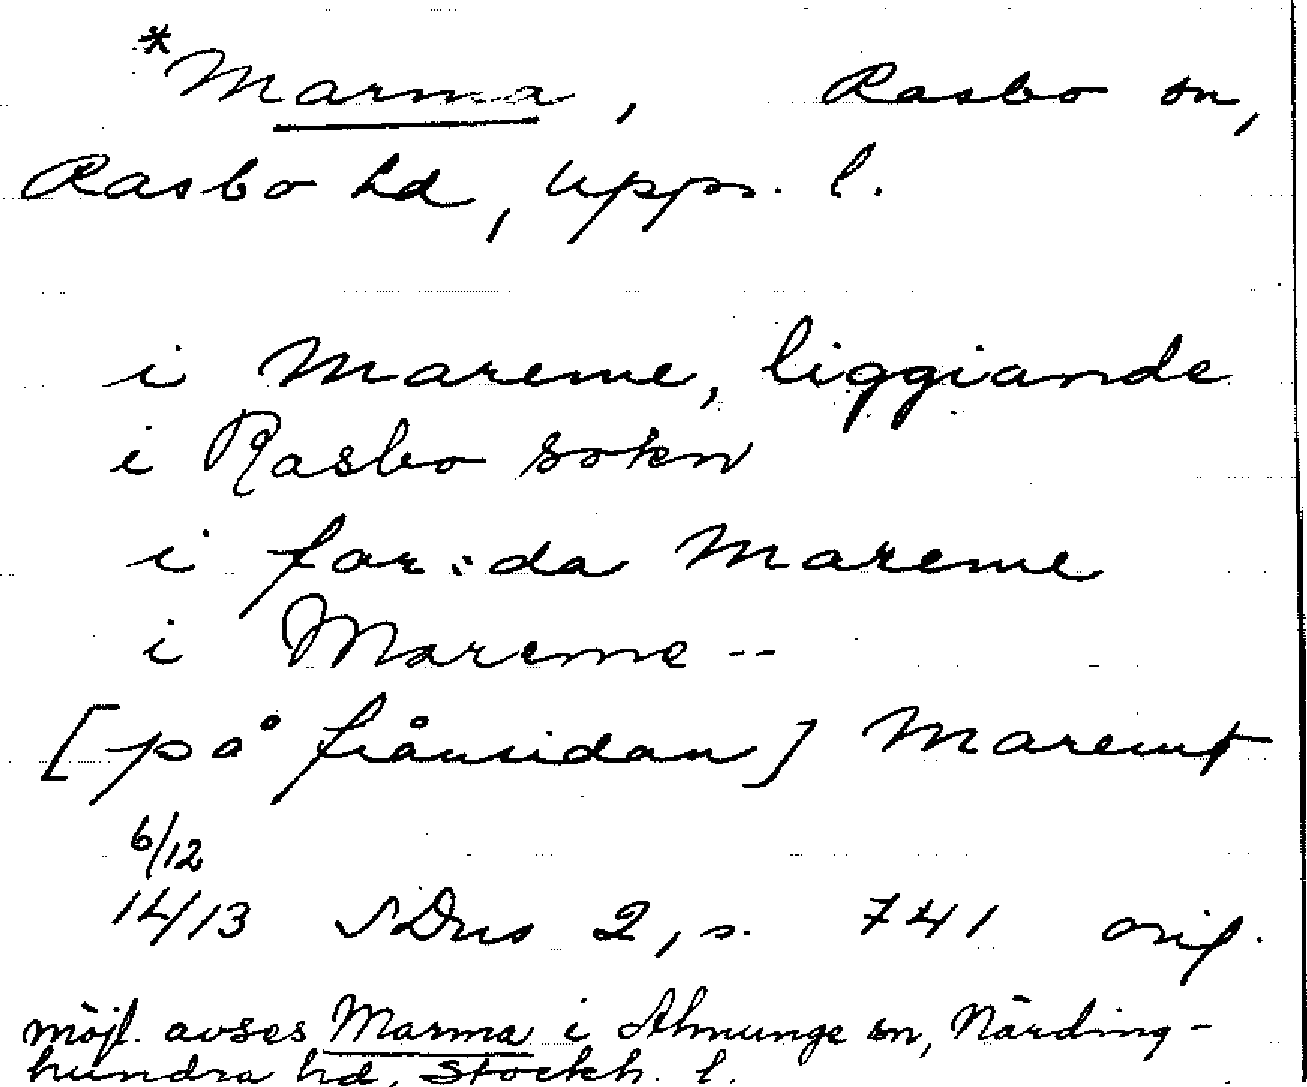 *Marma, Rasbo sn,
Rasbo hd, Upps. l.
i Mareme, liggiande
i Rasbo sokn
i for:da Mareme
i Mareme --
[på frånsidan] Maremt
6/12
1413 SDns 2, s. 741 orig.
möjl. avses Marma i Almunge sn, Närding-
hundra hd, Stockh. l.